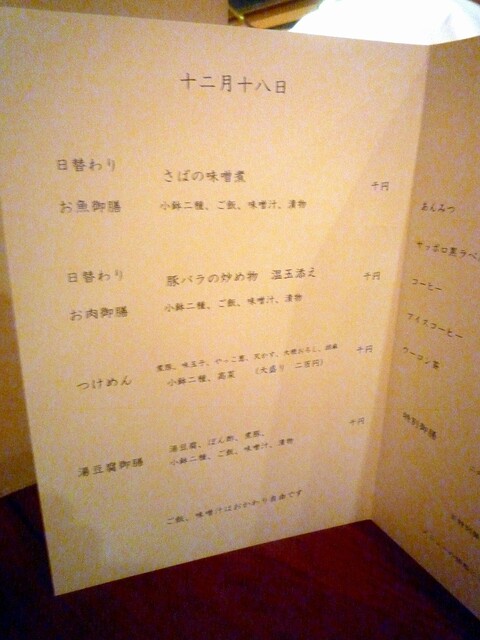 十二月十八日
日替わり さばの味噌煮
お魚御膳 小鉢二種、ご飯、味噌汁、漬物 千円
日替わり 豚バラの炒め物 温玉添え 千円
お肉御膳 小鉢二種、ご飯、味噌汁、漬物
煮豚、味玉子、やっこ葱、天かす、大根おろし、胡麻 千円
つけめん 小鉢二種、高菜 (大盛り 二百円)
千円
湯豆腐、ぽん酢、煮豚、
湯豆腐御膳 小鉢二種、ご飯、味噌汁、漬物
ご飯、味噌汁はおかわり自由です
あんみつ
サッポロ黒ラベ
コーヒー
アイスコーヒー
ウーロン茶
特別御膳